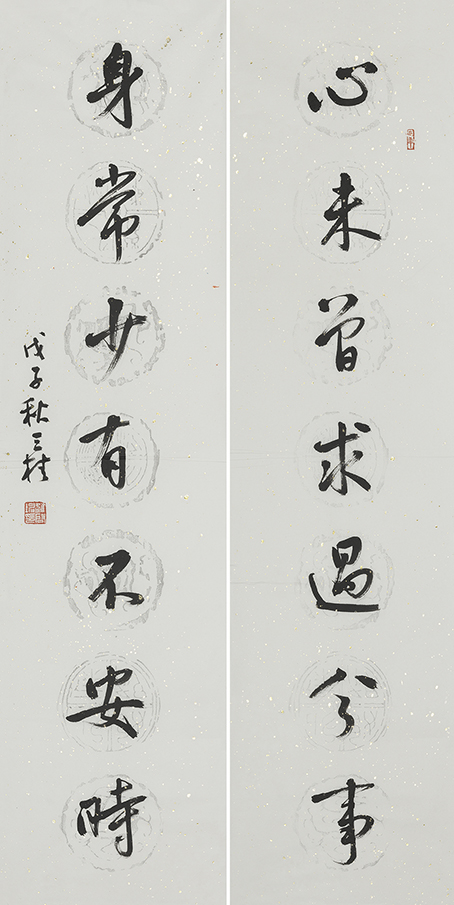 心未曾求過分事
身常少有不安時
戊子秋三桂